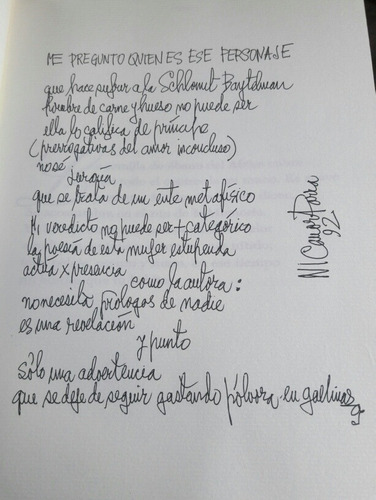 ME PREGUNTO QUIEN ES ESE PERSONAJE
que hace sufrir a la Schlomit Baytelman
hombre de carne y hueso no puede ser
ella lo califica de príncipe
(prerrogativas del amor inconcluso)
no sé
juraría
que se trata de un ente metafísico
Mi veredicto no puede ser + categórico
la poesía de esta mujer estupenda
actúa x presencia
como la autora:
no necesita prólogos de nadie
es una revelación
y punto
Sólo una advertencia
que se deje de seguir gastando pólvora en gallinazos
NICanor Parra
92